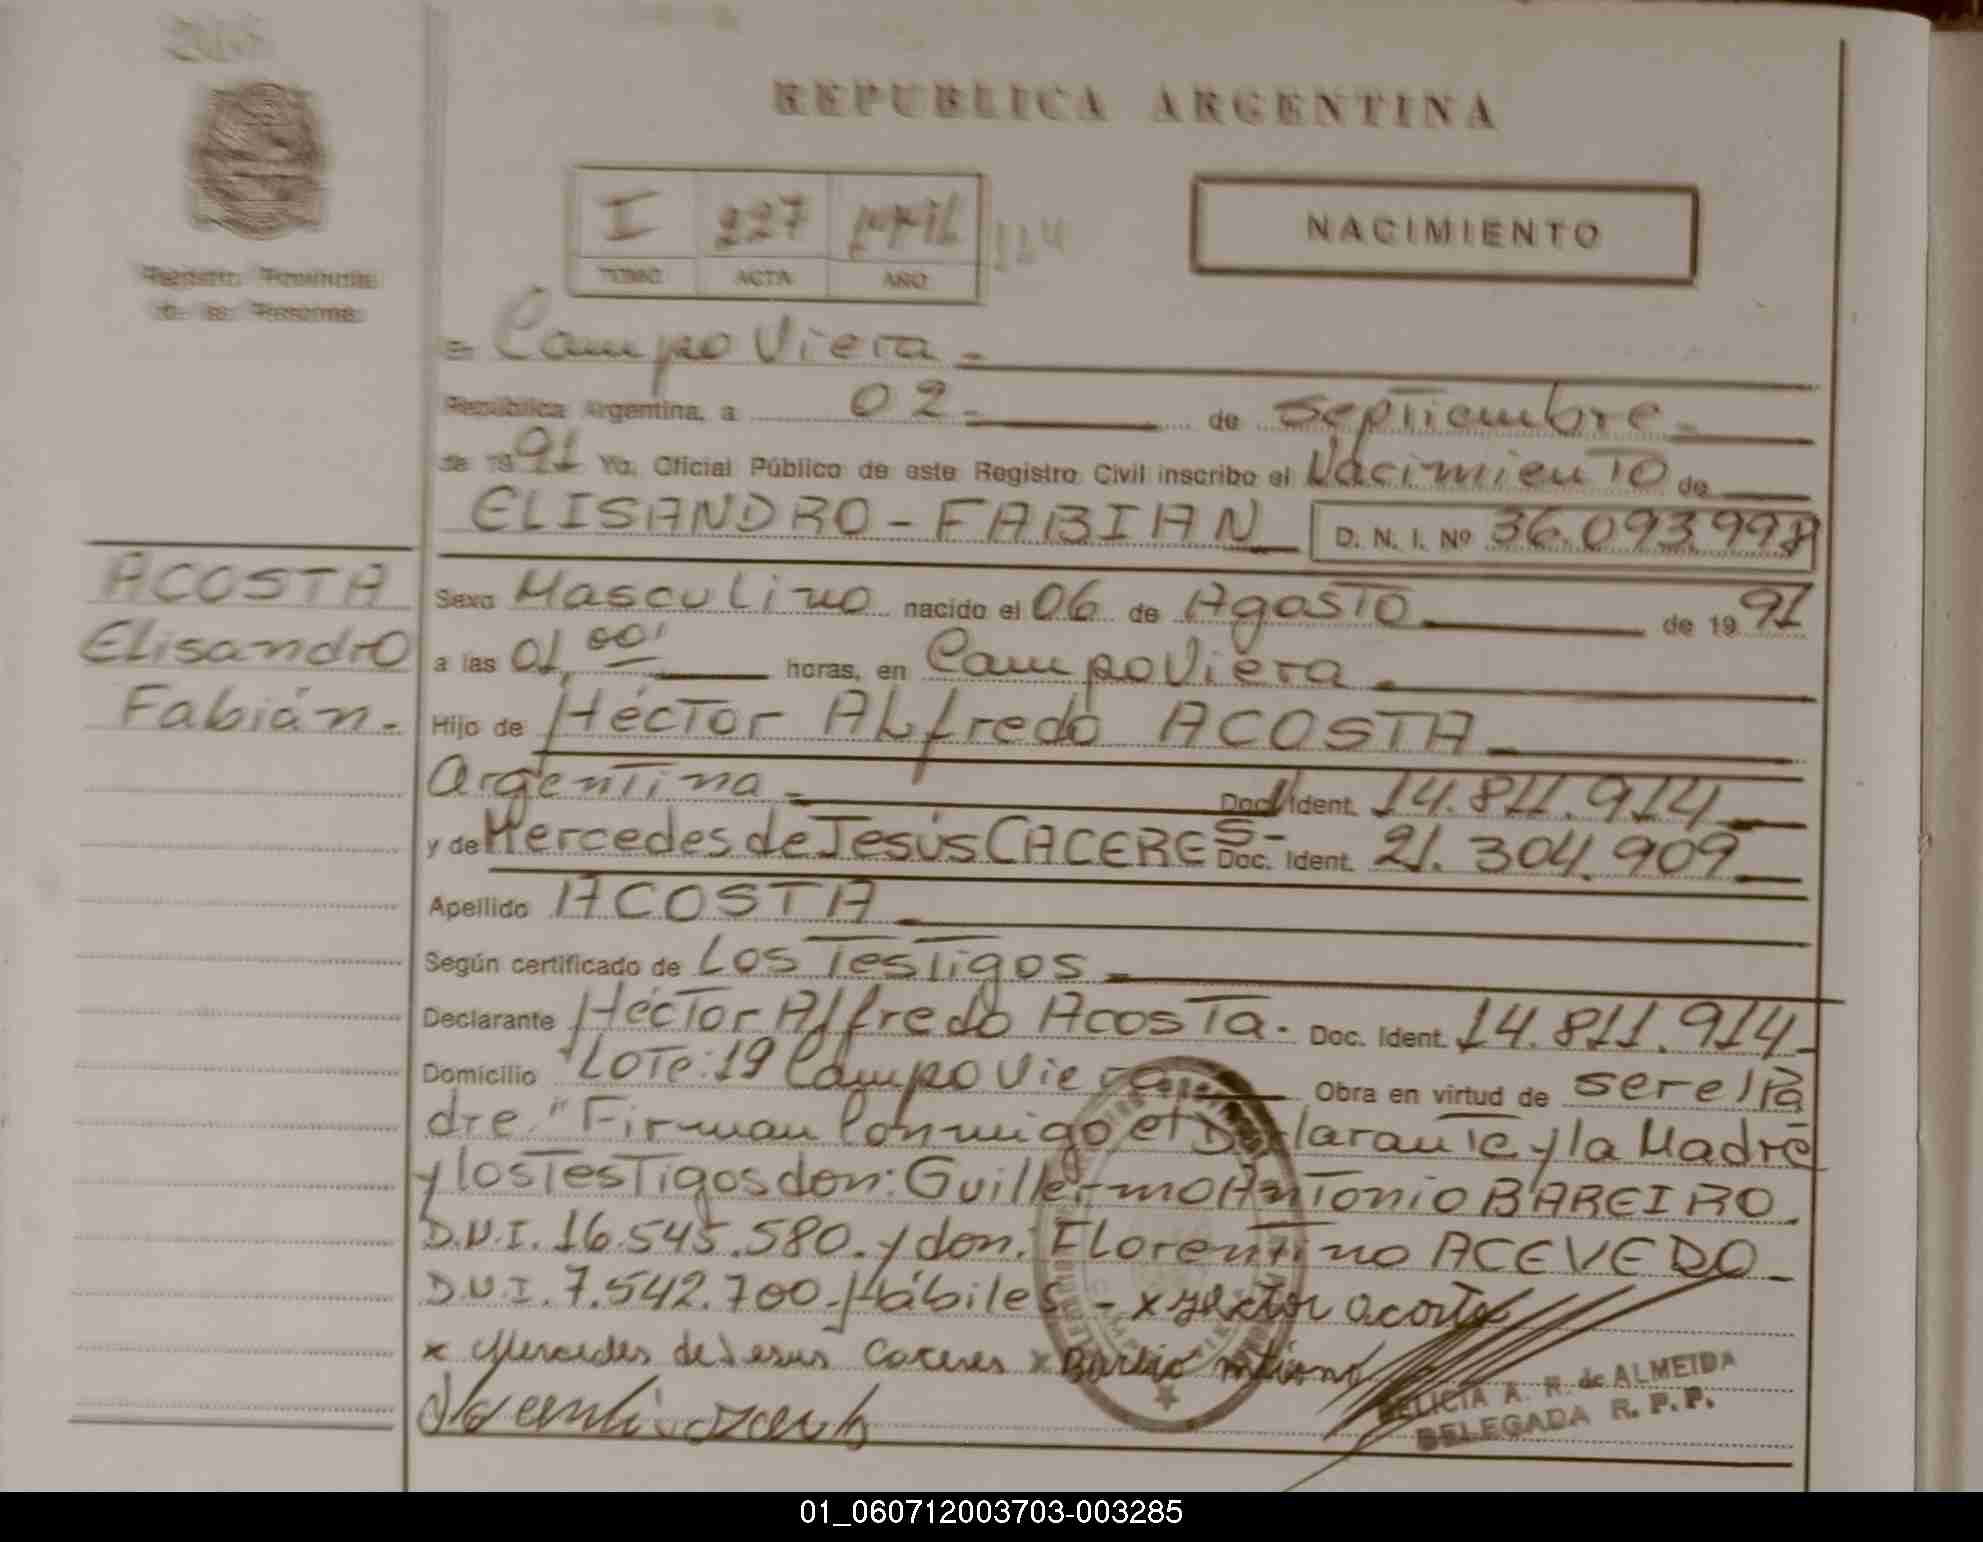 REPUBLICA ARGENTINA
I 227
TOMO ACTA AÑO
NACIMIENTO
Registro Provincial
de las Personas
En Campo Viera -
República Argentina, a 02 - de Septiembre -
de 1991 Yo, Oficial Público de este Registro Civil inscribo el Nacimiento de
ELISANDRO - FABIAN D. N. I. Nº 36.093.998
ACOSTA
Elisandro
Fabián.-
Sexo Masculino nacido el 06 de Agosto de 1991
a las 01,00' horas, en Campo Viera -
Hijo de Héctor Alfredo ACOSTA -
Argentina - Doc. Ident. 14.811.914
y de Mercedes de Jesús CACERES - Doc. Ident. 21.304.909
Apellido ACOSTA -
Según certificado de Los Testigos -
Declarante Héctor Alfredo Acosta. Doc. Ident. 14.811.914-
Domicilio Lote: 19 Campo Viera Obra en virtud de ser el Pa
dre." Firman Conmigo el Declarante y la Madre
y los Testigos don: Guillermo Antonio BAREIRO
D.N.I. 16.545.580. y don: Florentino ACEVEDO -
D.N.I. 7.542.700.- Hábiles - x Hector acosta
x Mercedes de Jesus Caceres x
FELICIA A. R. de ALMEIDA
DELEGADA R. P. P.
01_060712003703-003285